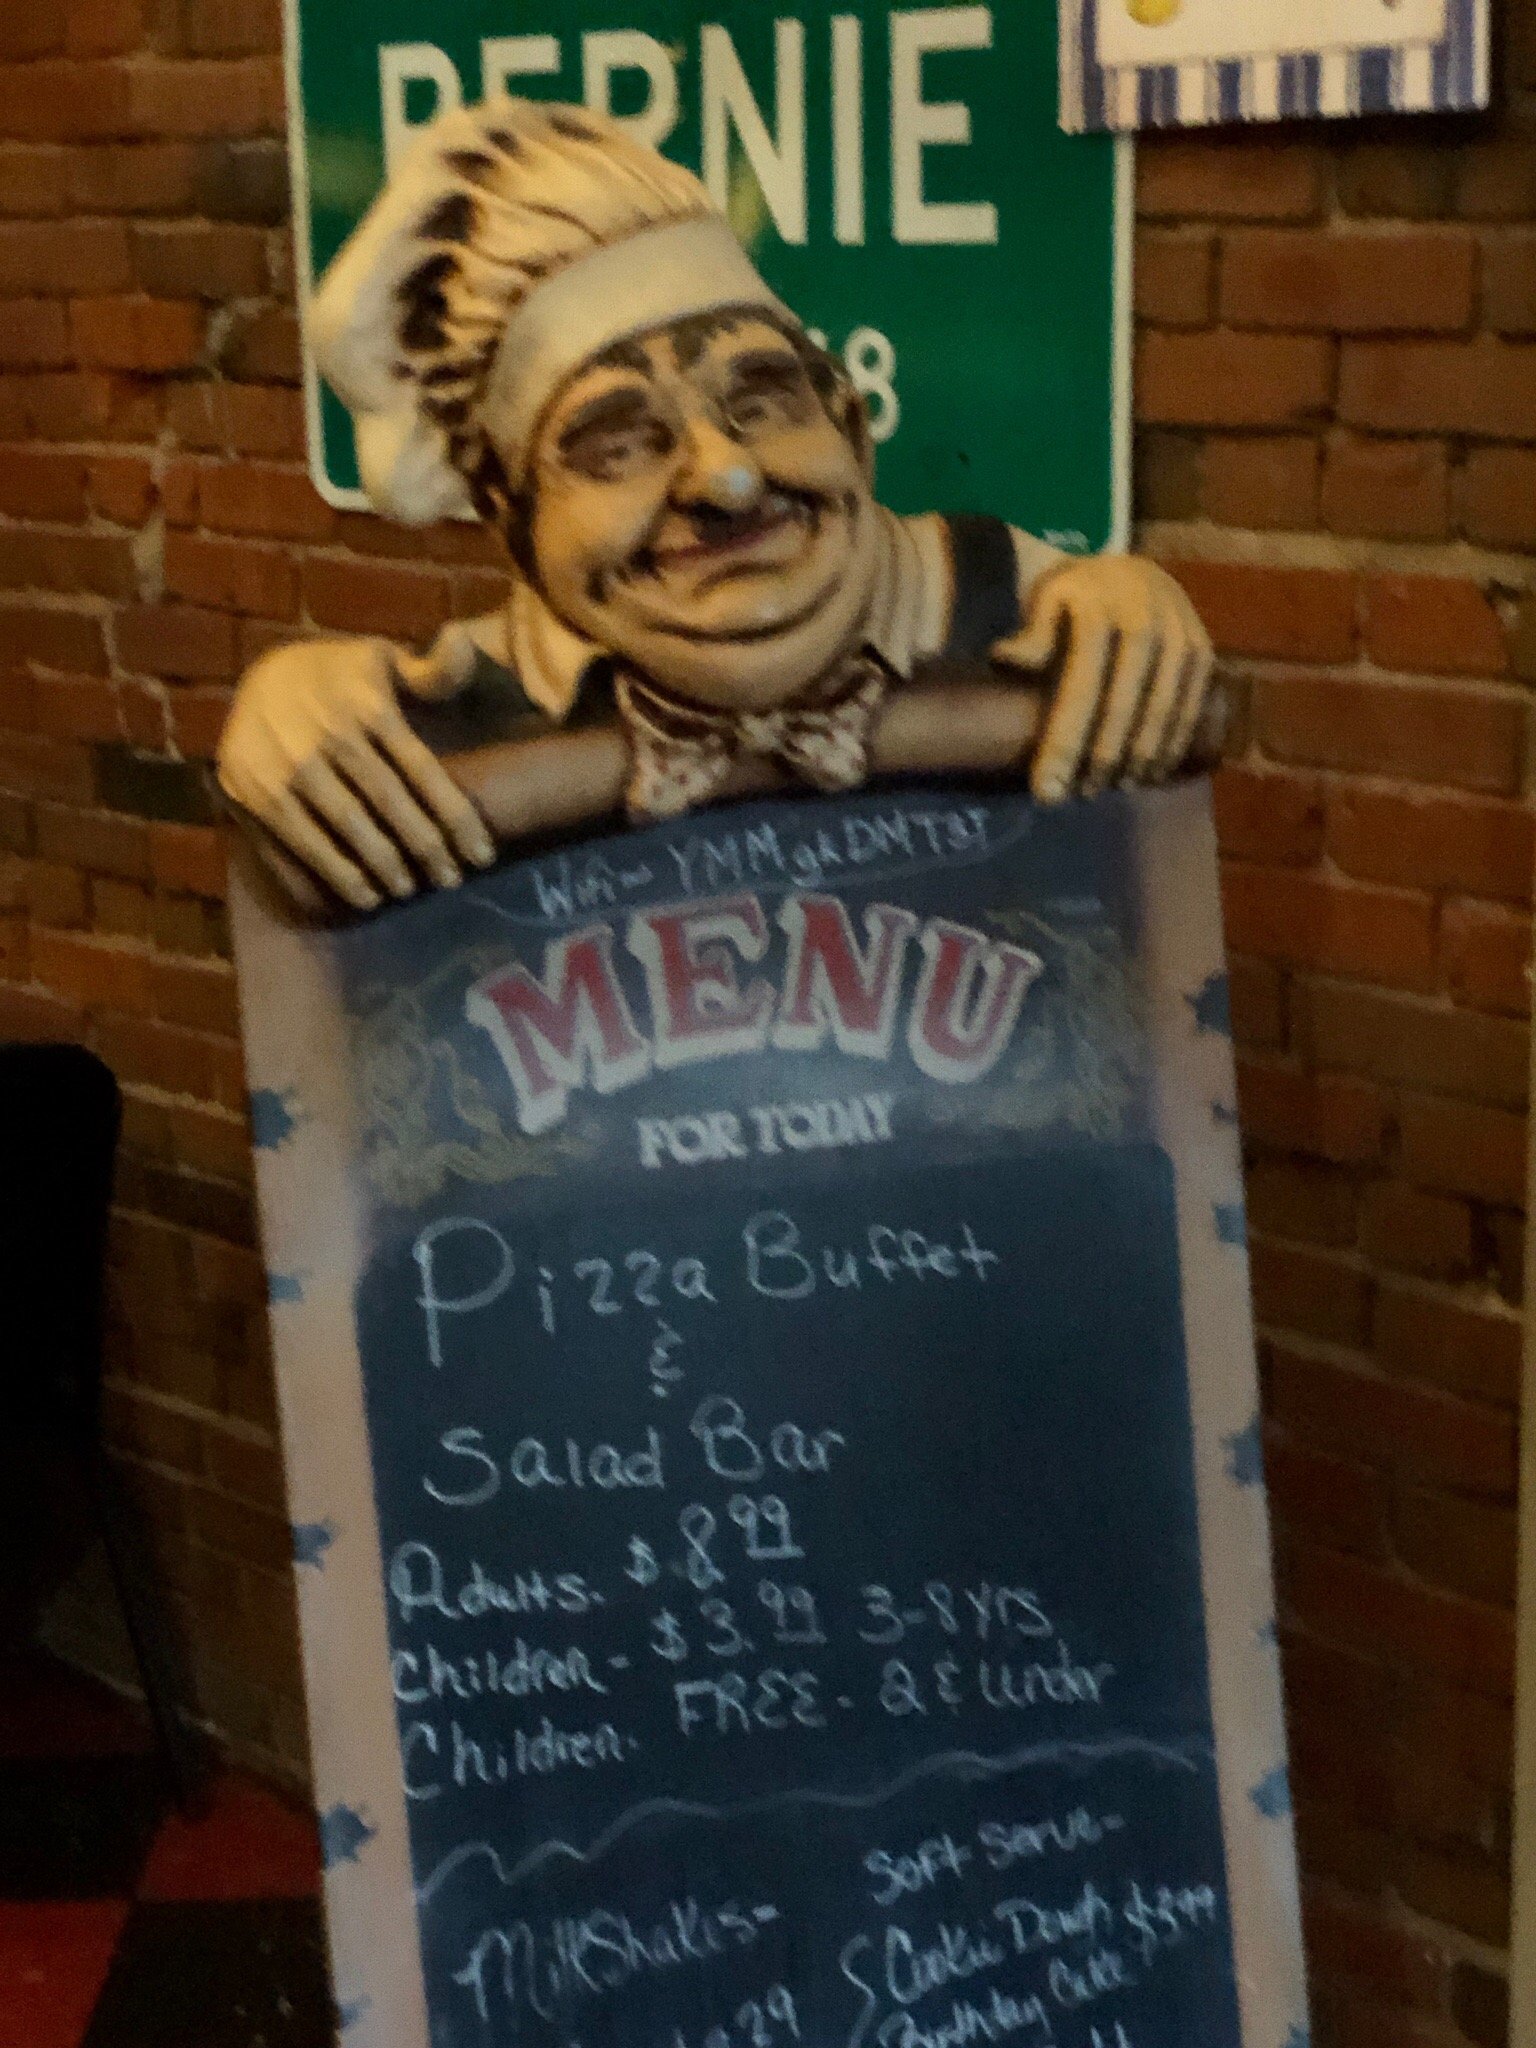 BERNIE
8
MENU
FOR TODAY
Pizza Buffet
&
Salad Bar
Adults. $.8 99
Children - $3.99 3-8 yrs
Children. FREE - 2 & under
Soft Serve-
MilkShakes-
Cookie Dough $3.99
Birthday Cake
29